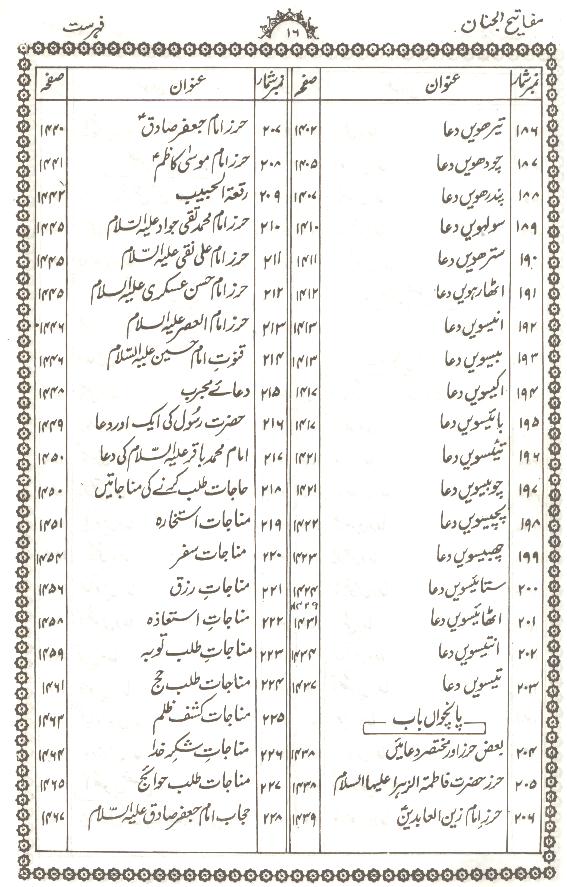 مفاتیح الجنان ۱۶ فہرست
نمبر شمار عنوان صفحہ
۱۸۶ تیرھویں دعا ۱۴۰۲
۱۸۷ چودھویں دعا ۱۴۰۵
۱۸۸ پندرھویں دعا ۱۴۰۷
۱۸۹ سولہویں دعا ۱۴۱۰
۱۹۰ سترھویں دعا ۱۴۱۱
۱۹۱ اٹھارہویں دعا ۱۴۱۲
۱۹۲ انیسویں دعا ۱۴۱۳
۱۹۳ بیسویں دعا ۱۴۱۳
۱۹۴ اکیسویں دعا ۱۴۱۷
۱۹۵ بائیسویں دعا ۱۴۱۷
۱۹۶ تیئسویں دعا ۱۴۲۱
۱۹۷ چوبیسویں دعا ۱۴۲۱
۱۹۸ پچیسویں دعا ۱۴۲۲
۱۹۹ چھبیسویں دعا ۱۴۲۳
۲۰۰ ستائیسویں دعا ۱۴۲۴
۱۴۲۹
۲۰۱ اٹھائیسویں دعا ۱۴۳۱
۲۰۲ انتیسویں دعا ۱۴۳۴
۲۰۳ تیسویں دعا ۱۴۳۷
پانچواں باب
۲۰۴ بعض حرز اور مختصر دعائیں ۱۴۳۸
۲۰۵ حرز حضرت فاطمۃ الزہرا علیہا السلام ۱۴۳۸
۲۰۶ حرز امام زین العابدینؑ ۱۴۳۹
نمبر شمار عنوان صفحہ
۲۰۷ حرز امام جعفر صادقؑ ۱۴۴۰
۲۰۸ حرز امام موسیٰ کاظمؑ ۱۴۴۱
۲۰۹ رقعۃ الجیب ۱۴۴۲
۲۱۰ حرز امام محمد تقی جواد علیہ السلام ۱۴۴۵
۲۱۱ حرز امام علی نقی علیہ السلام ۱۴۴۵
۲۱۲ حرز امام حسن عسکری علیہ السلام ۱۴۴۵
۲۱۳ حرز امام العصر علیہ السلام ۱۴۴۶
۲۱۴ قنوت امام حسین علیہ السلام ۱۴۴۶
۲۱۵ دعائے مجرب ۱۴۴۸
۲۱۶ حضرت رسولؐ کی ایک اور دعا ۱۴۴۹
۲۱۷ امام محمد باقر علیہ السلام کی دعا ۱۴۵۰
۲۱۸ حاجات طلب کرنے کی مناجاتیں ۱۴۵۰
۲۱۹ مناجات استخارہ ۱۴۵۱
۲۲۰ مناجات سفر ۱۴۵۴
۲۲۱ مناجاتِ رزق ۱۴۵۶
۲۲۲ مناجاتِ استعاذہ ۱۴۵۸
۲۲۳ مناجات طلب توبہ ۱۴۵۹
۲۲۴ مناجات طلب حج ۱۴۶۱
۲۲۵ مناجات کشف ظلم ۱۴۶۳
۲۲۶ مناجاتِ شکرِ خدا ۱۴۶۴
۲۲۷ مناجات طلب حوائج ۱۴۶۵
۲۲۸ حجاب امام جعفر صادق علیہ السلام ۱۴۶۷